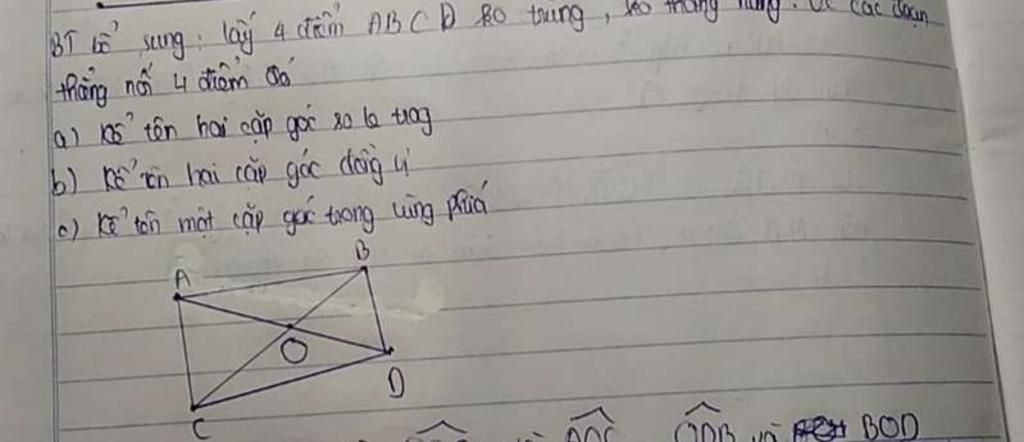 BT bổ sung: lấy 4 điểm A B C D ko trùng, ko thẳng hàng. Vẽ các đoạn
thẳng nối 4 điểm đó
a) Kể tên hai cặp góc so le trog
b) Kể tên hai cặp góc đồng vị
c) Kể tên một cặp góc trong cùng phía
A B
O
D
C
AOC ODB và BOD